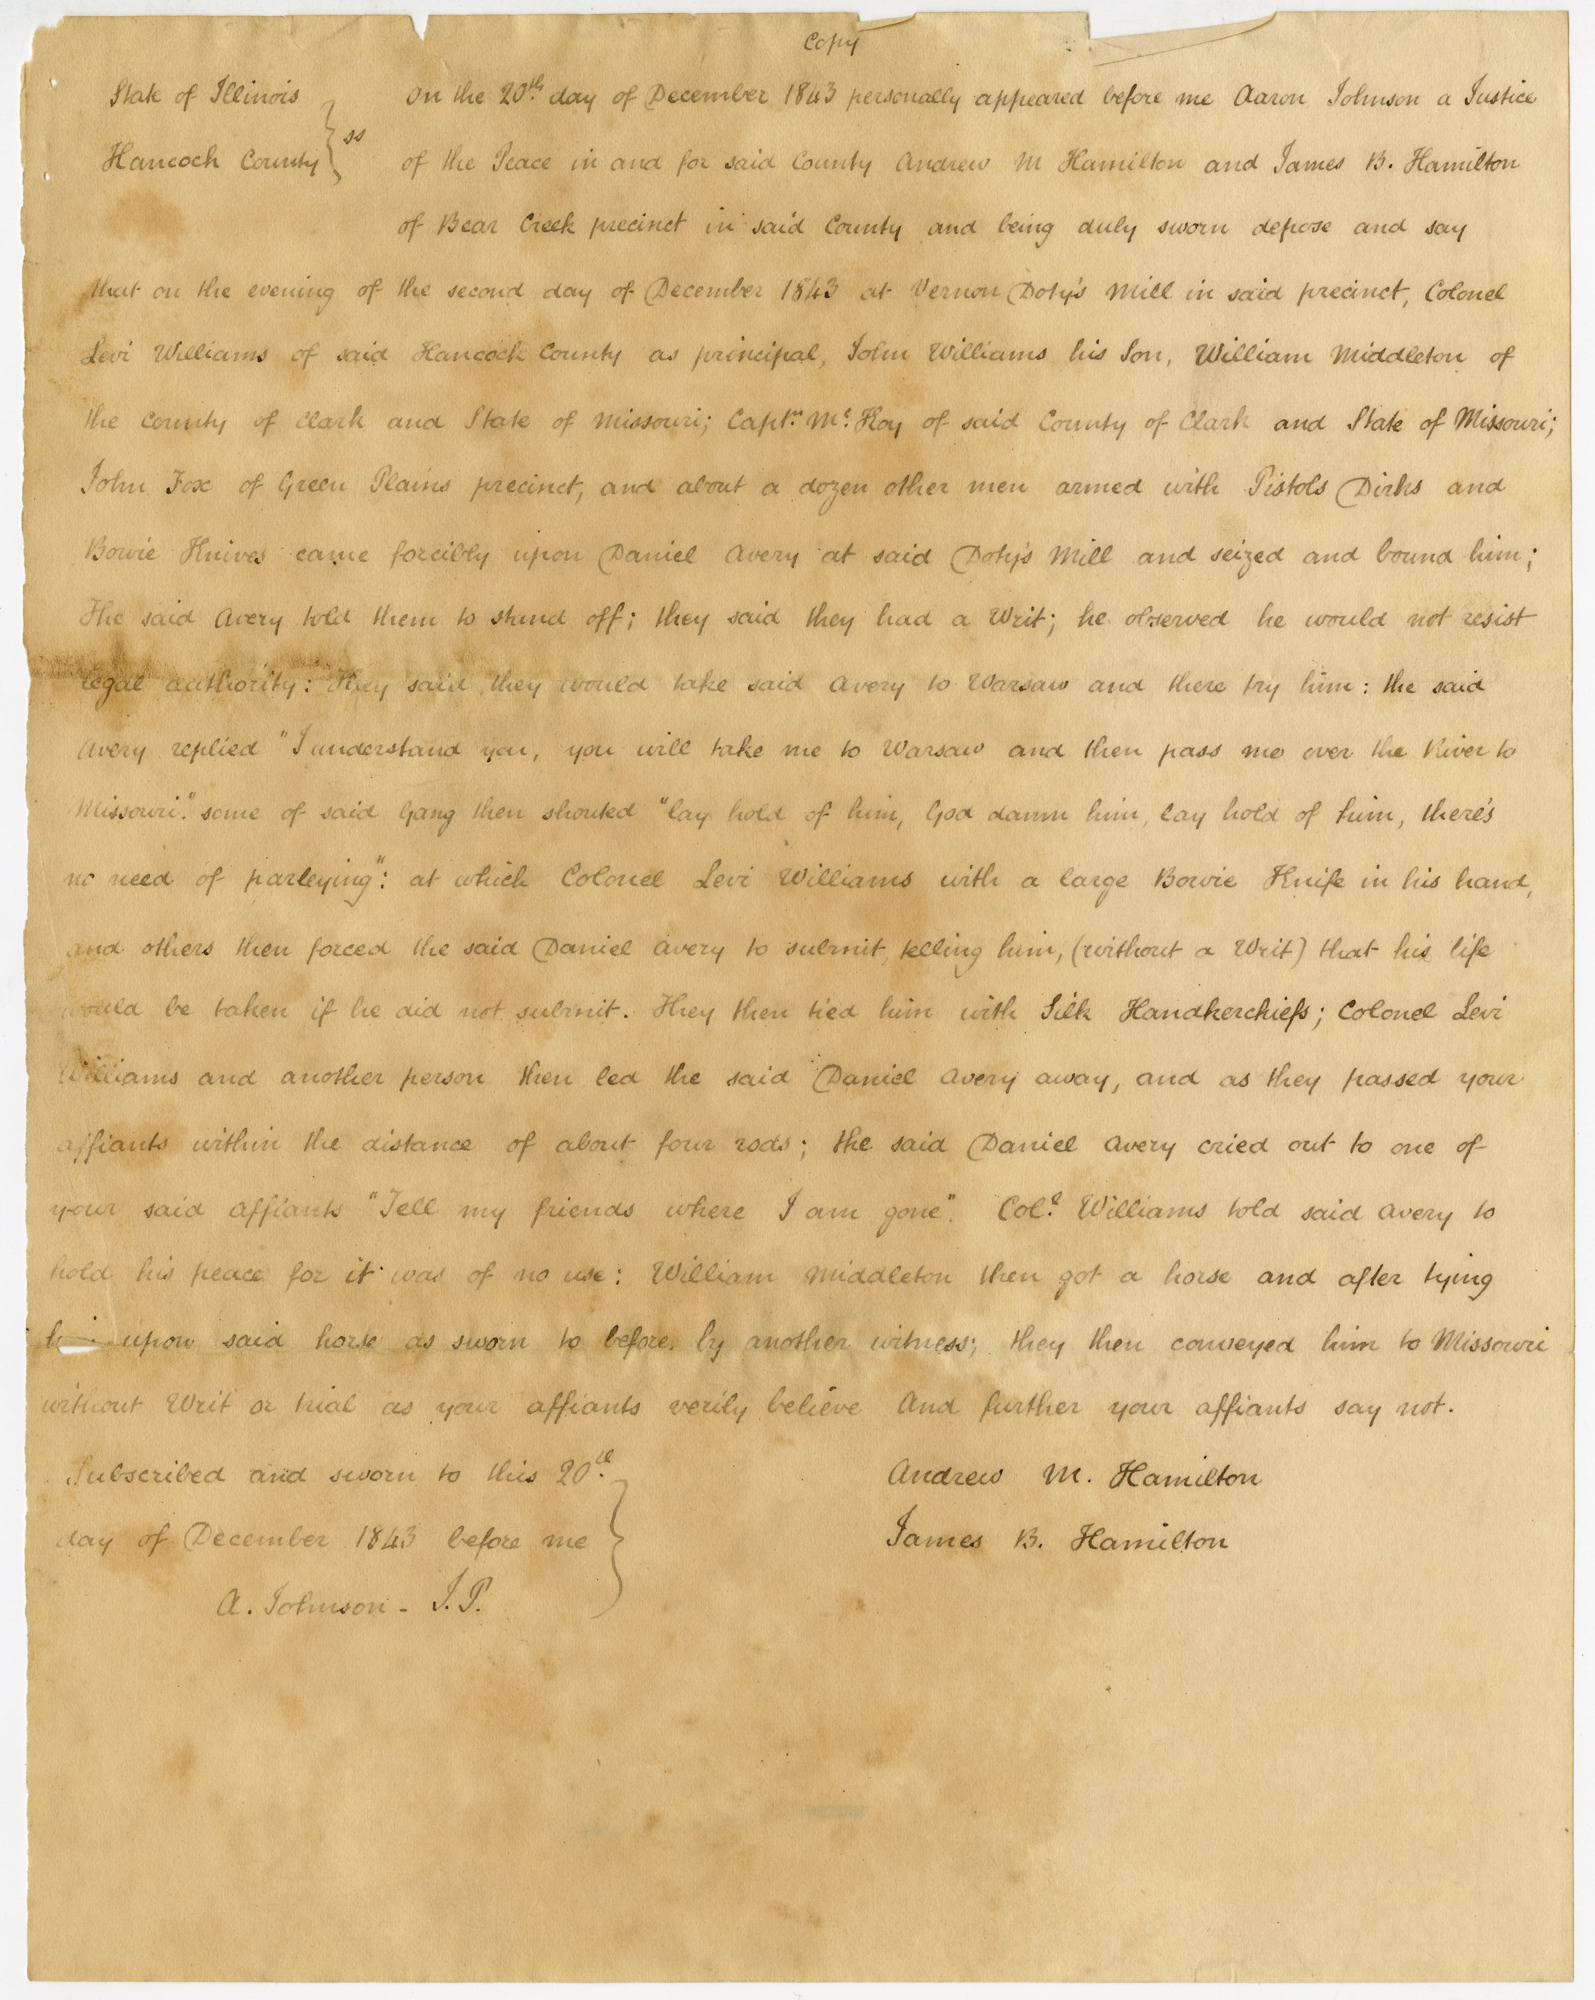 Copy
State of Illinois } ss On the 20th. day of December 1843 personally appeared before me Aaron Johnson a Justice
Hancock County of the Peace in and for said County Andrew M Hamilton and James B. Hamilton
of Bear Creek precinct in said County and being duly sworn depose and say
that on the evening of the second day of December 1843 at Vernon Doty's Mill in said precinct, Colonel
Levi Williams of said Hancock County as principal, John Williams his Son, William Middleton of
the County of Clark and State of Missouri; Captn. Mc. Koy of said County of Clark and State of Missouri;
John Fox of Green Plains precinct, and about a dozen other men armed with Pistols Dirks and
Bowie Knives came forcibly upon Daniel Avery at said Doty's Mill and seized and bound him;
The said Avery told them to stand off; they said they had a Writ; he observed he would not resist
legal authority: They said they would take said Avery to Warsaw and there try him: the said
Avery replied "I understand you, you will take me to Warsaw and then pass me over the River to
Missouri." some of said Gang then shouted "lay hold of him, God damn him, lay hold of him, there's
no need of parleying": at which Colonel Levi Williams with a large Bowie Knife in his hand,
and others then forced the said Daniel Avery to submit, telling him, (without a Writ) that his life
would be taken if he did not submit. They then tied him with Silk Handkerchiefs; Colonel Levi
Williams and another person then led the said Daniel Avery away, and as they passed your
affiants within the distance of about four rods; the said Daniel Avery cried out to one of
your said affiants "Tell my friends where I am gone". Coll. Williams told said Avery to
hold his peace for it was of no use: William Middleton then got a horse and after tying
him upon said horse as sworn to before by another witness; they then conveyed him to Missouri
without Writ or trial as your affiants verily believe And further your affiants say not.
Subscribed and sworn to this 20th. Andrew M. Hamilton
day of December 1843 before me } James B. Hamilton
A. Johnson - J.P.